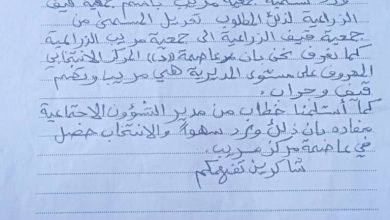 ورد تسمية جمعية مريب باسم جمعية قيف
الزراعية لذلك المطلوب تعديل المسمى من
جمعية قيف الزراعية الى جمعية مريب الزراعية
كما نعرف نحن بان مرعاصمة «د» المركز الانتخابي
المعروف على مستوى المديرية هي مريب ويضم
قيف وجراب.
كما أستلمنا خطاب من مدير الشؤون الاجتماعية
مفاده بان ذلك ورد سهواً والانتخاب حصل
في عاصمة مركز مريب.
شاكرين تفهمكم